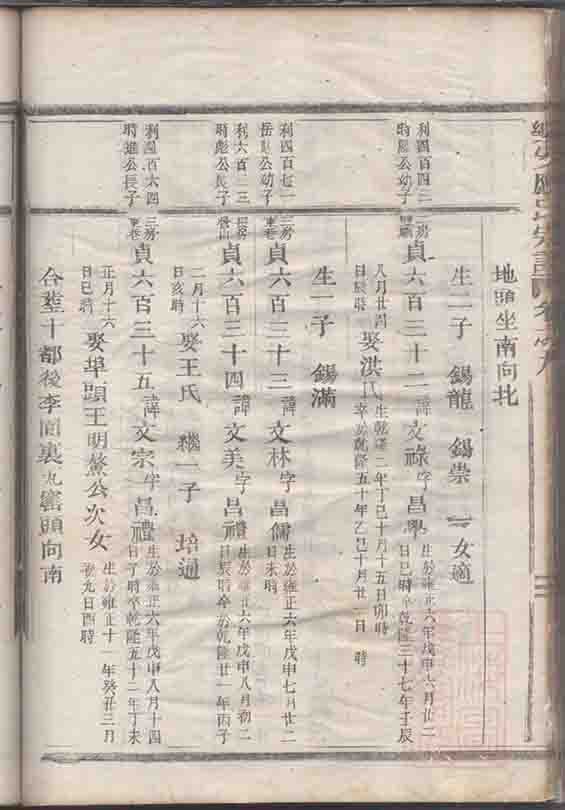 地頭坐南向北
生二子 錫龍 錫崇 一女適
利四百四二
時 公幼子
二房
貞六百三十二諱文祿字昌學
生於雍正六年戊申六月廿二
日巳時卒乾隆三十七年壬辰
八月廿四
日辰時
娶洪氏
生乾隆二年丁巳十月十五日卯時
卒於乾隆五十年乙巳十月廿二日 時
生一子 錫滿
利四百七一
岳 公幼子
三房
東巷
貞六百三十三諱文林字昌儒
生於雍正六年戊申七月廿二
日未時
利六百二三
時彪公長子
貞六百三十四諱文美字昌禮
生於雍正六年戊申八月初二
日辰時卒於乾隆廿一年丙子
二月十六
日亥時
娶王氏 繼一子 培通
利四百六四
時雄公長子
三房
東巷
貞六百三十五諱文宗字昌禮
生於雍正六年戊申八月十四
日丁時卒乾隆五十二年丁未
正月十六
日巳時
娶埠頭王明鰲公次女
生於雍正十一年癸丑三月
初九日酉時
合塟十都後李園裏九窟頭向南